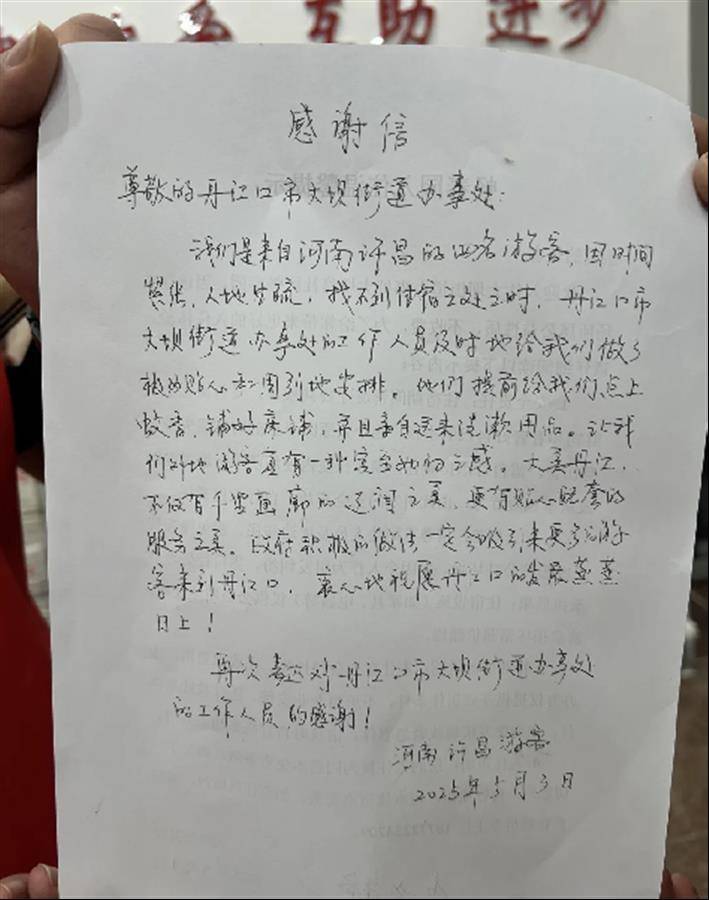 互助 进步
感谢信
尊敬的丹江口市大坝街道办事处:
我们是来自河南许昌的四名游客,因时间
紧张,人地生疏,找不到住宿之处之时,丹江口市
大坝街道办事处的工作人员及时地给我们做了
极为贴心和周到地安排。他们提前给我们点上
蚊香、铺好床铺,并且亲自送来洗漱用品。让我
们外地游客真有一种宾至如归之感。大美丹江,
不仅有千里画廊的这润之美,更有贴心配套的
服务之美。政府积极的做法一定会吸引来更多游
客来到丹江口,衷心地祝愿丹江口的发展蒸蒸
日上!
再次表达对丹江口市大坝街道办事处
的工作人员的感谢!
河南许昌游客
2025年5月3日